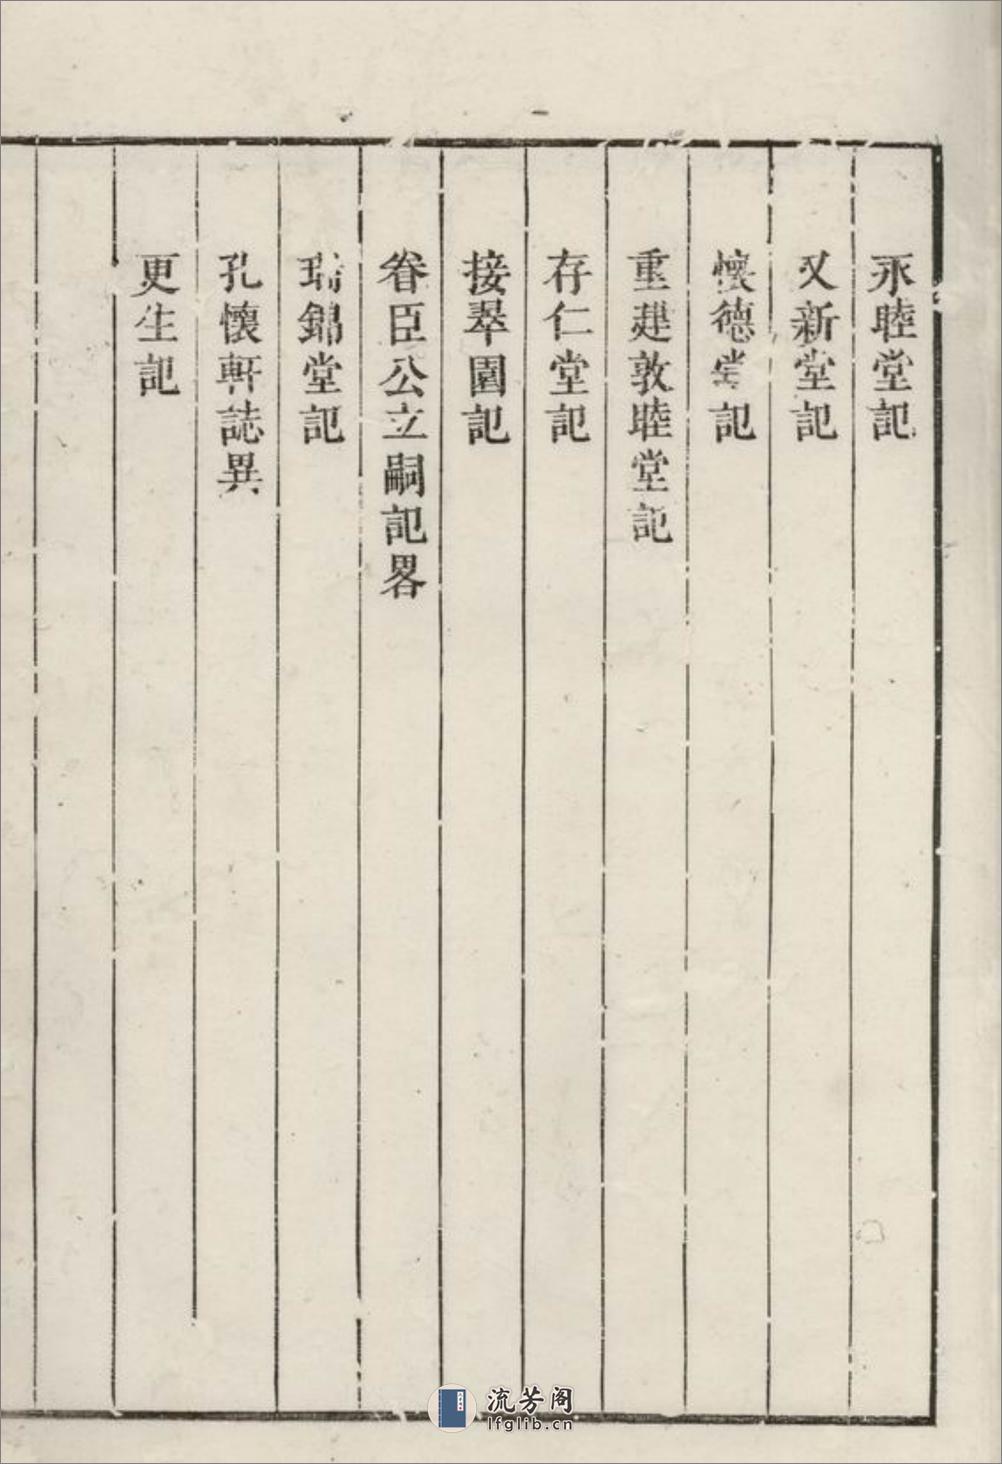 永睦堂記
又新堂記
懷德堂記
重建敦睦堂記
存仁堂記
接翠園記
眷臣公立嗣記畧
瑞錦堂記
孔懷軒誌異
更生記
流芳阁
lfglib.cn